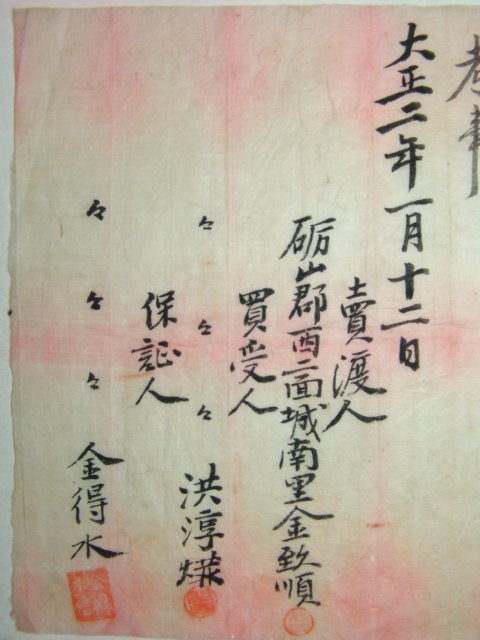 大正二年一月十二日
賣渡人
砺山郡西二面城南里金致順
買受人
々々々洪淳燁
保証人
々々々金得水